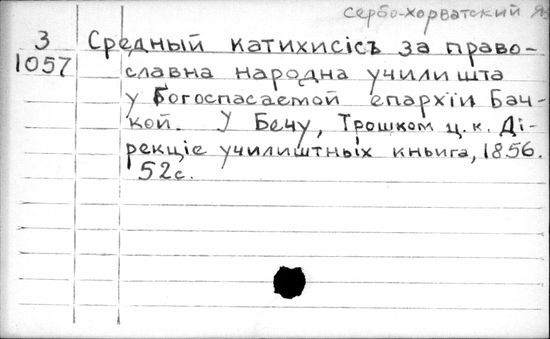 сербо-хорватский Яз
З Средный катихисісъ за право-
1057 славна народна училишта
у богоспасаемой епархїи Бач-
кой. У Бечу, Трошком ц. к. Ді-
рекціе училиштных кньига, 1856.
52с.